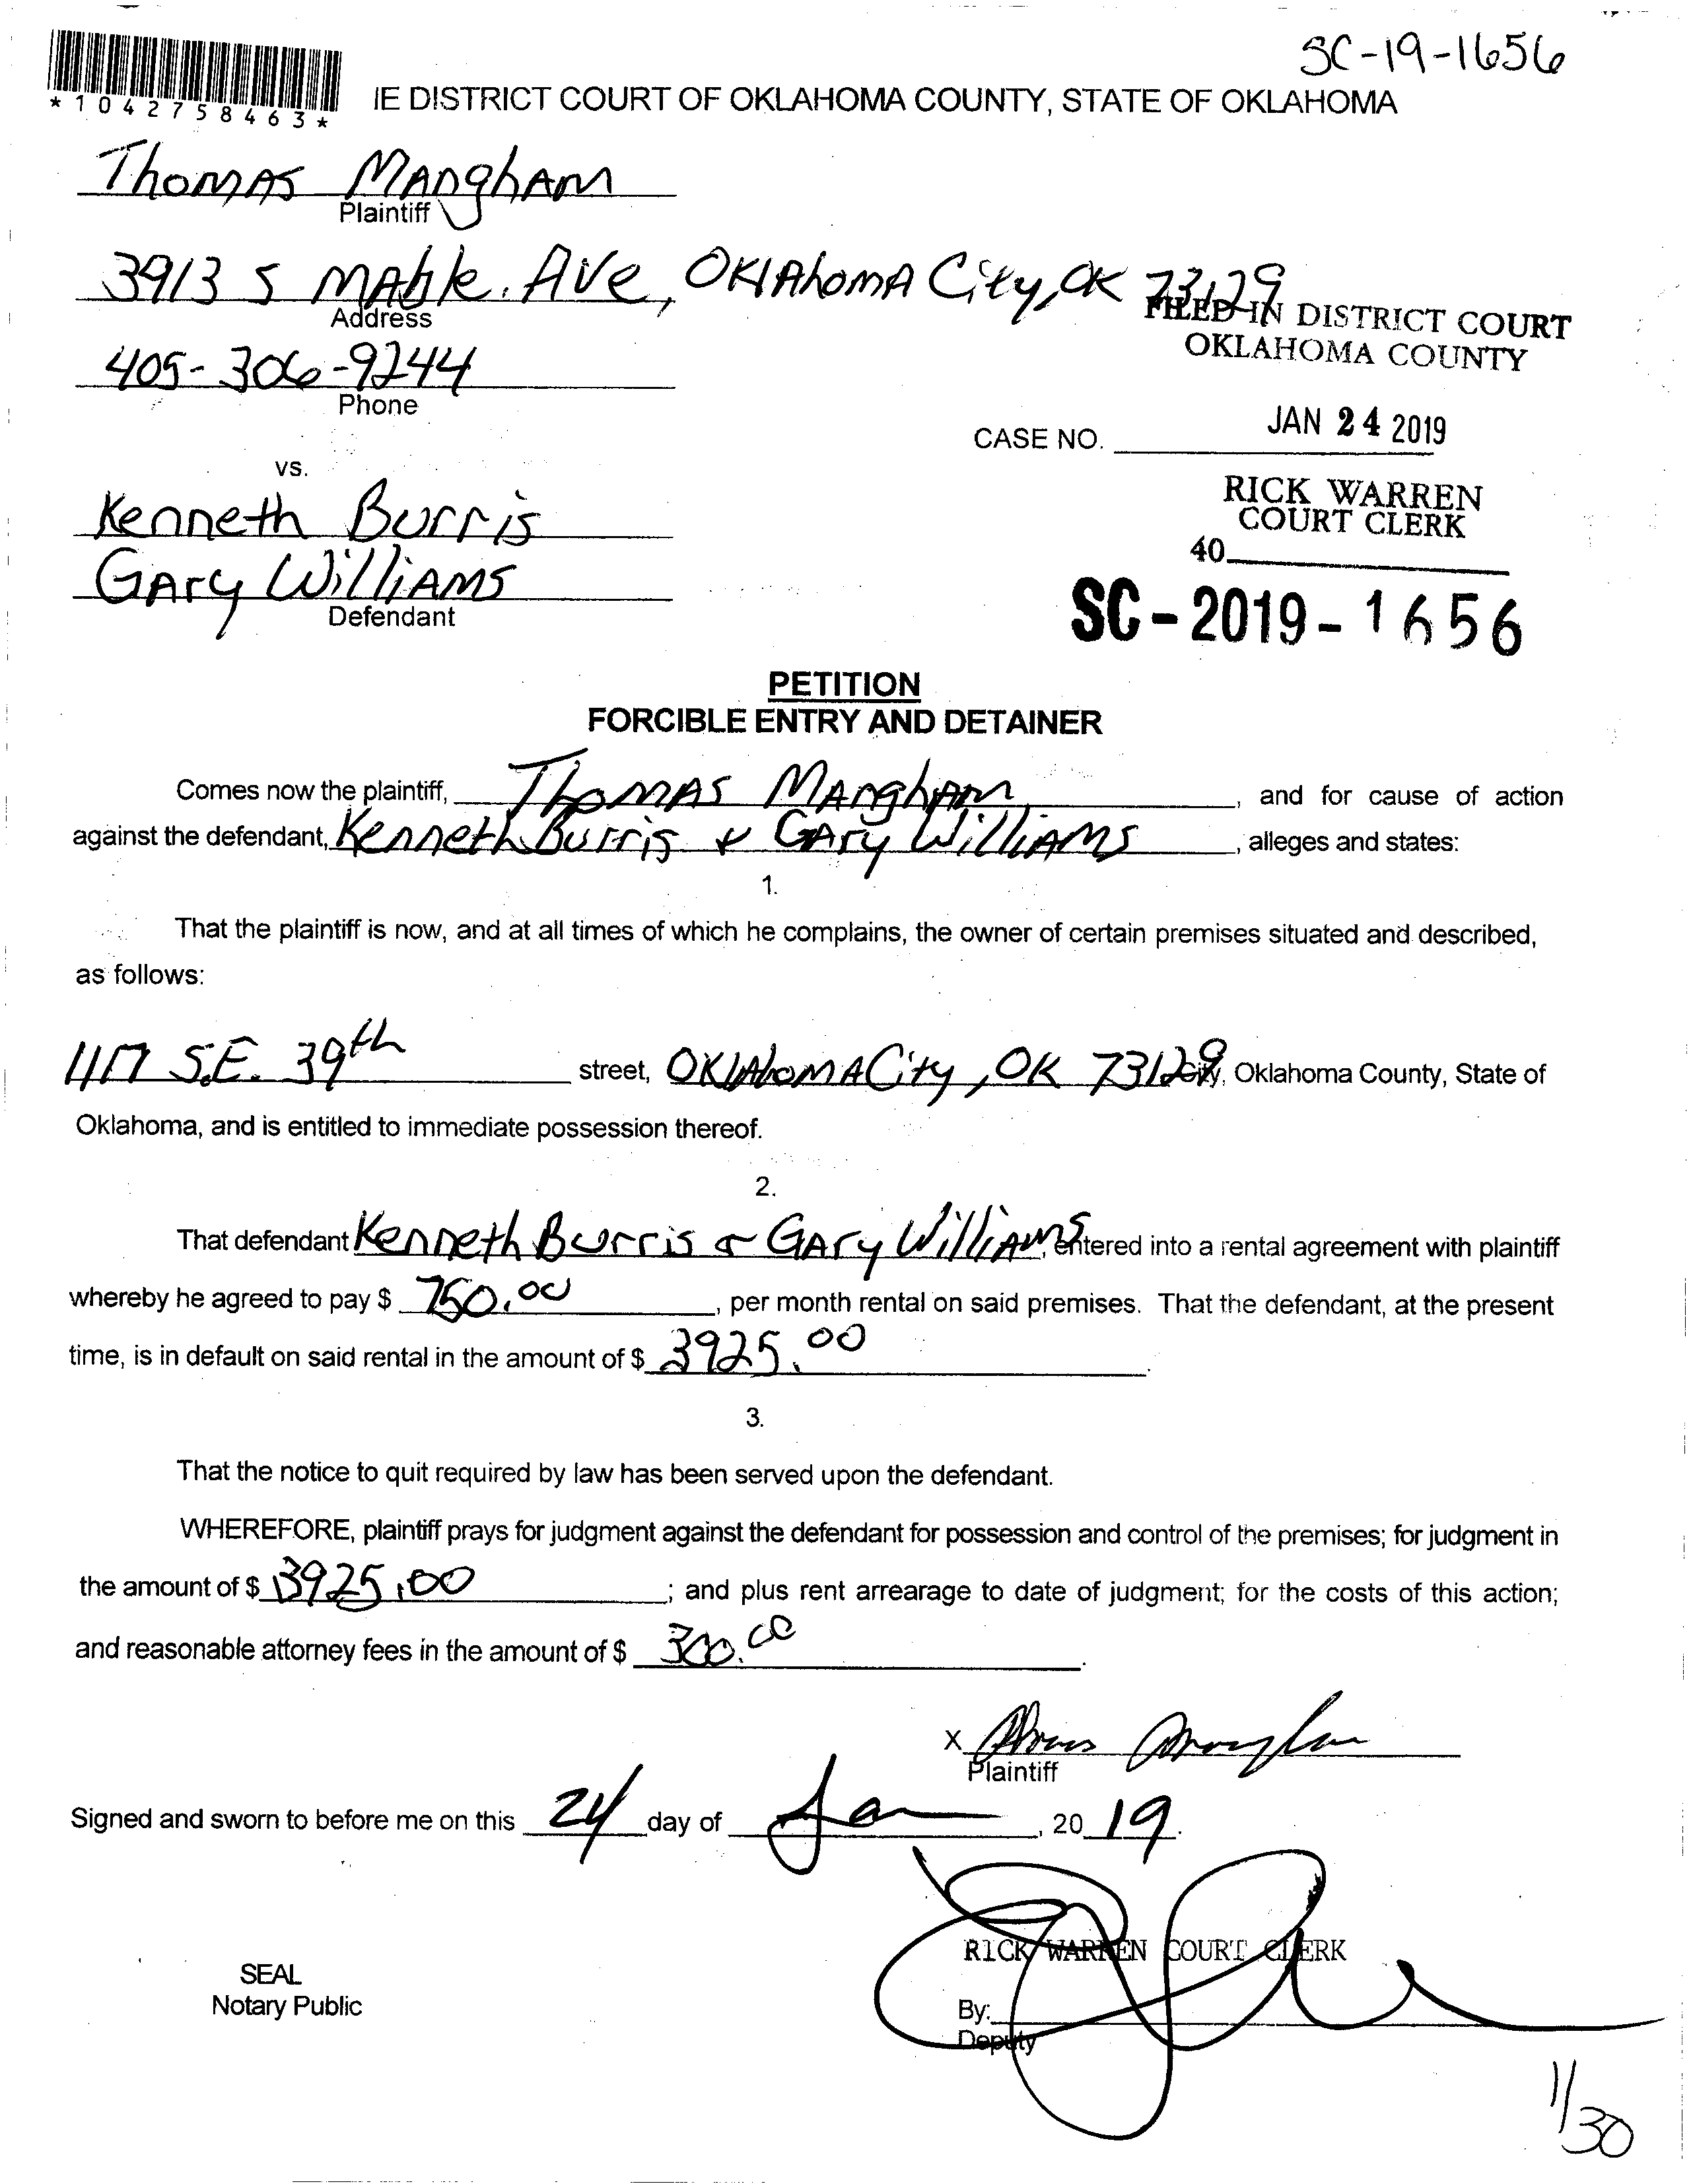 SC-19-1656
*1042758463*
IE DISTRICT COURT OF OKLAHOMA COUNTY, STATE OF OKLAHOMA
Thomas Mangham
Plaintiff
3913 S Mable. Ave, Oklahoma City, OK 73129
Address
FILED IN DISTRICT COURT
OKLAHOMA COUNTY
405-306-9244
Phone
JAN 24 2019
CASE NO.
vs.
RICK WARREN
COURT CLERK
Kenneth Burris
40
Gary Williams
Defendant
SC-2019-1656
PETITION
FORCIBLE ENTRY AND DETAINER
Comes now the plaintiff, Thomas Mangham, and for cause of action
against the defendant, Kenneth Burris & Gary Williams, alleges and states:
1.
That the plaintiff is now, and at all times of which he complains, the owner of certain premises situated and described,
as follows:
1117 S.E. 39th street, Oklahoma City, OK 73129 City, Oklahoma County, State of
Oklahoma, and is entitled to immediate possession thereof.
2.
That defendant Kenneth Burris & Gary Williams, entered into a rental agreement with plaintiff
whereby he agreed to pay $ 750.00, per month rental on said premises. That the defendant, at the present
time, is in default on said rental in the amount of $ 3925.00.
3.
That the notice to quit required by law has been served upon the defendant.
WHEREFORE, plaintiff prays for judgment against the defendant for possession and control of the premises; for judgment in
the amount of $ 3925.00; and plus rent arrearage to date of judgment; for the costs of this action;
and reasonable attorney fees in the amount of $ 300.00.
X
Plaintiff
Signed and sworn to before me on this 24 day of Jan, 2019.
RICK WARREN COURT CLERK
SEAL
Notary Public
By:
Deputy
1/30